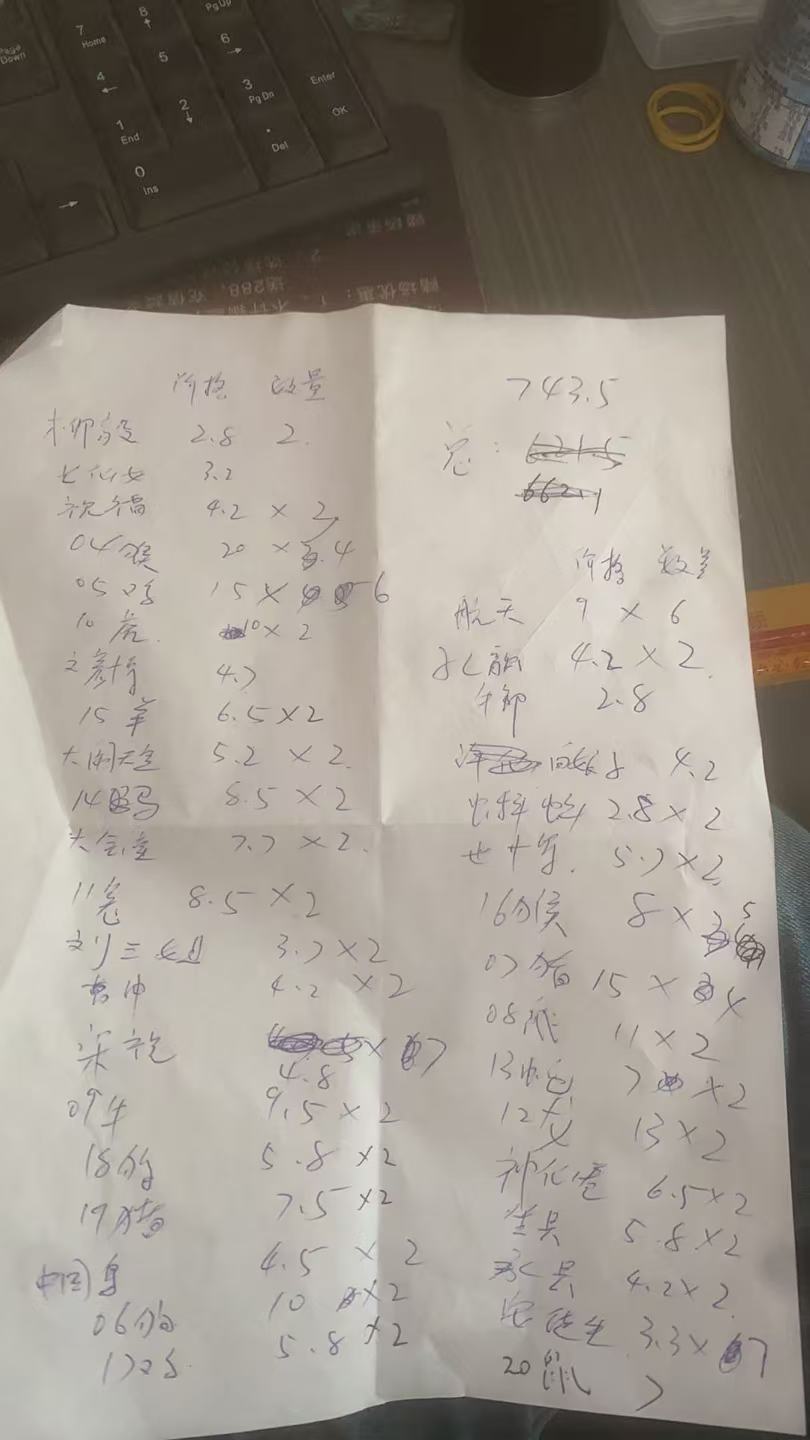 7
Home
8
PgUp
Page
Down
4
5
6
1
End
2
3
PgDn
Enter
OK
0
Ins
.
Del
价格 数量
柳毅 2.8 2.
七仙女 3.2
祝福 4.2 × 2
04猴 20 × 4
05鸡 15 × 6
10虎. 10 × 2
文彦博 4.7
15羊 6.5 × 2
大闹天宫 5.2 × 2.
14马 8.5 × 2
7.7 × 2.
11兔 8.5 × 2
刘三姐 3.7 × 2
4.2 × 2
梁祝 4.8 × 7
09牛 9.5 × 2
18狗 5.8 × 2
19猪 7.5 × 2
中国鸟 4.5 × 2
06狗 10 × 2
17鸡. 5.8 × 2
743.5
总:
价格 数量
航天 9 × 6
4.2 × 2.
牛郎 2.8
4.2
2.8 × 2
5.7 × 2
16猴 8 × 5
07猪 15 × 4
08鼠 11 × 2
13蛇 7 × 2
12龙 13 × 2
6.5 × 2
5.8 × 2
4.2 × 2.
安徒生 3.3 × 7
20鼠 7